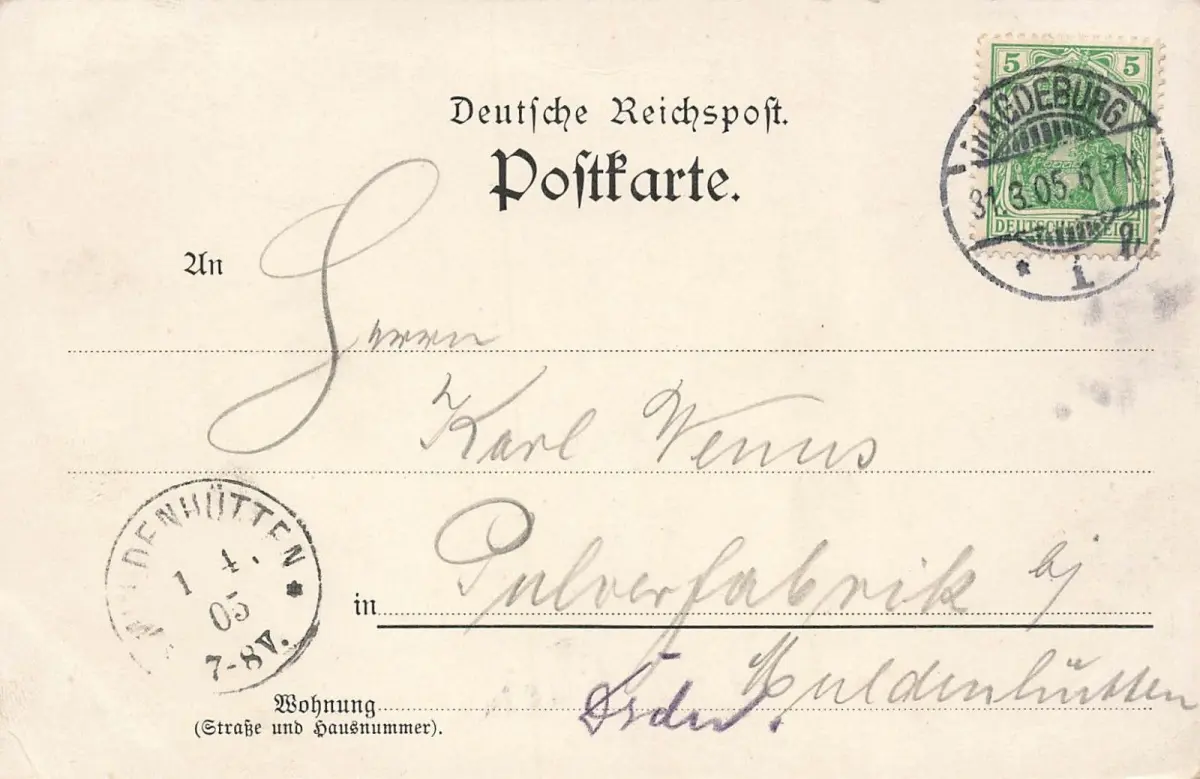 5 5
Deutsche Reichspost.
MAGDEBURG
Postkarte.
31.3.05.6-7N
DEUTSCHES REICH
* 1
An
Herrn
Karl Wenus
MULDENHÜTTEN *
1 4.
05
7-8V.
in Pulverfabrik bj
Muldenhütten
Wohnung
(Straße und Hausnummer).